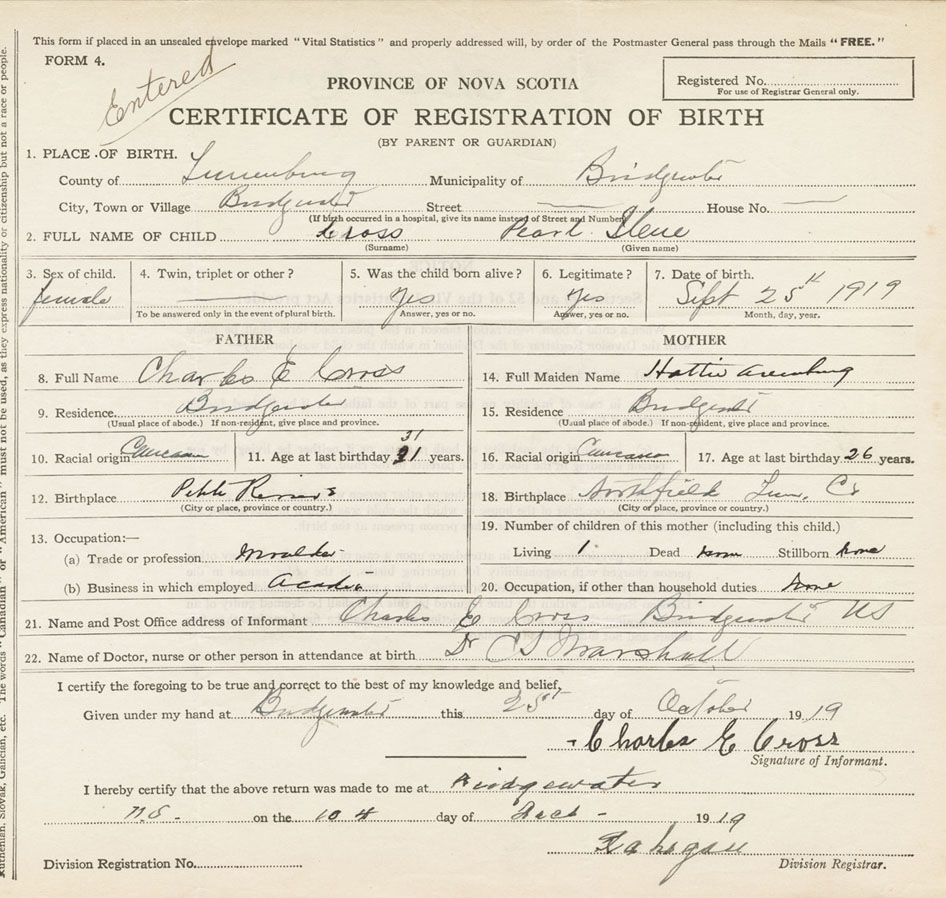 This form if placed in an unsealed envelope marked "Vital Statistics" and properly addressed will, by order of the Postmaster General pass through the Mails "FREE."
FORM 4.
Entered
PROVINCE OF NOVA SCOTIA
Registered No.
For use of Registrar General only.
CERTIFICATE OF REGISTRATION OF BIRTH
(BY PARENT OR GUARDIAN)
1. PLACE OF BIRTH.
County of Lunenburg Municipality of Bridgewater
City, Town or Village Bridgewater Street — House No. —
(If birth occurred in a hospital, give its name instead of Street and Number)
2. FULL NAME OF CHILD Cross Pearl Ilene
(Surname) (Given name)
3. Sex of child. 4. Twin, triplet or other? 5. Was the child born alive? 6. Legitimate? 7. Date of birth.
female — Yes Yes Sept 25th 1919
To be answered only in the event of plural birth. Answer, yes or no. Answer, yes or no. Month, day, year.
FATHER MOTHER
8. Full Name Charles E Cross 14. Full Maiden Name Hattie
9. Residence. Bridgewater 15. Residence Bridgewater
(Usual place of abode.) If non-resident, give place and province. (Usual place of abode.) If non-resident, give place and province.
31
10. Racial origin Caucasian 11. Age at last birthday 31 years. 16. Racial origin 17. Age at last birthday 26 years.
12. Birthplace Petite Riviere 18. Birthplace Northfield Lun. Co
(City or place, province or country.) (City or place, province or country.)
13. Occupation:— 19. Number of children of this mother (including this child.)
(a) Trade or profession Moulder Living 1 Dead none Stillborn none
(b) Business in which employed Acadia 20. Occupation, if other than household duties none
21. Name and Post Office address of Informant Charles E Cross Bridgewater NS
22. Name of Doctor, nurse or other person in attendance at birth Dr Marshall
I certify the foregoing to be true and correct to the best of my knowledge and belief,
Given under my hand at Bridgewater this 25th day of October 1919
Charles E Cross
Signature of Informant.
I hereby certify that the above return was made to me at Bridgewater
N.S. on the day of 1919
Division Registration No. Division Registrar.
The words "Canadian" or "American" must not be used, as they express nationality or citizenship but not a race or people.
Ruthenian, Slovak, Galician, etc.